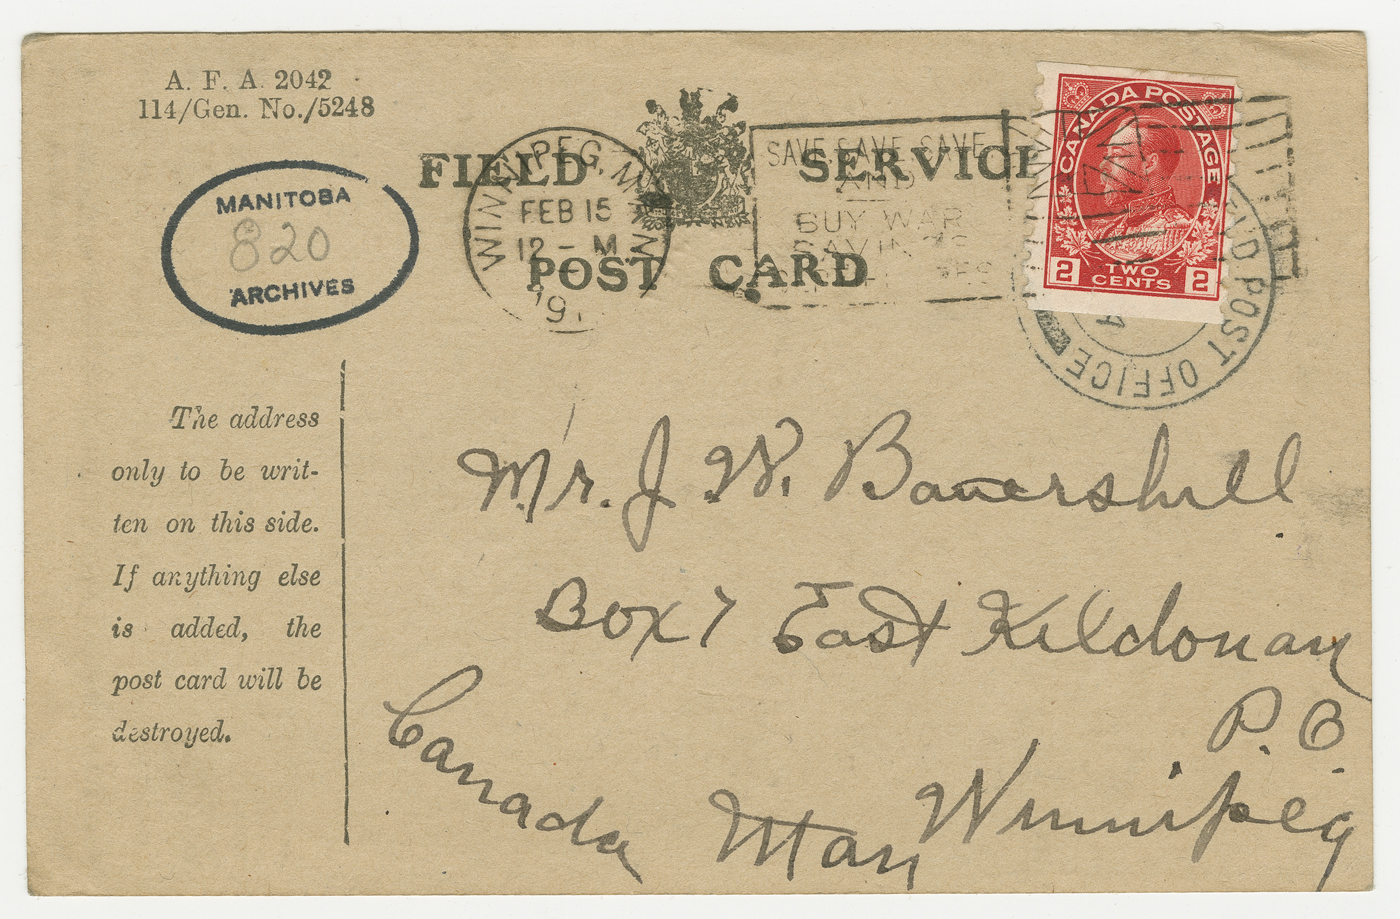 A. F. A. 2042
114/Gen. No./5248
FIELD SERVICE
POST CARD
MANITOBA
820
ARCHIVES
WINNIPEG, MAN.
FEB 15
12 - M
191
SAVE, SAVE, SAVE
AND
BUY WAR
SAVINGS
CANADA POSTAGE
2 TWO CENTS 2
POST OFFICE
The address
only to be writ-
ten on this side.
If anything else
is added, the
post card will be
destroyed.
Mr. J. W. Bauershill
Box 7 East Kildonan
P. O.
Winnipeg
Man
Canada